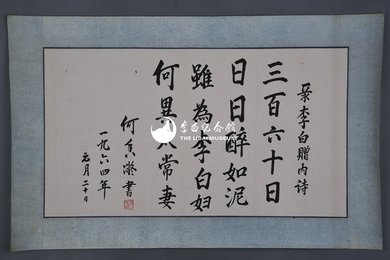 录李白赠内诗
三百六十日
日日醉如泥
雖為李白妇
何異太常妻
何香凝書
一九六四年
元月二十日
李白纪念馆
THE LIBAI MUSEUM